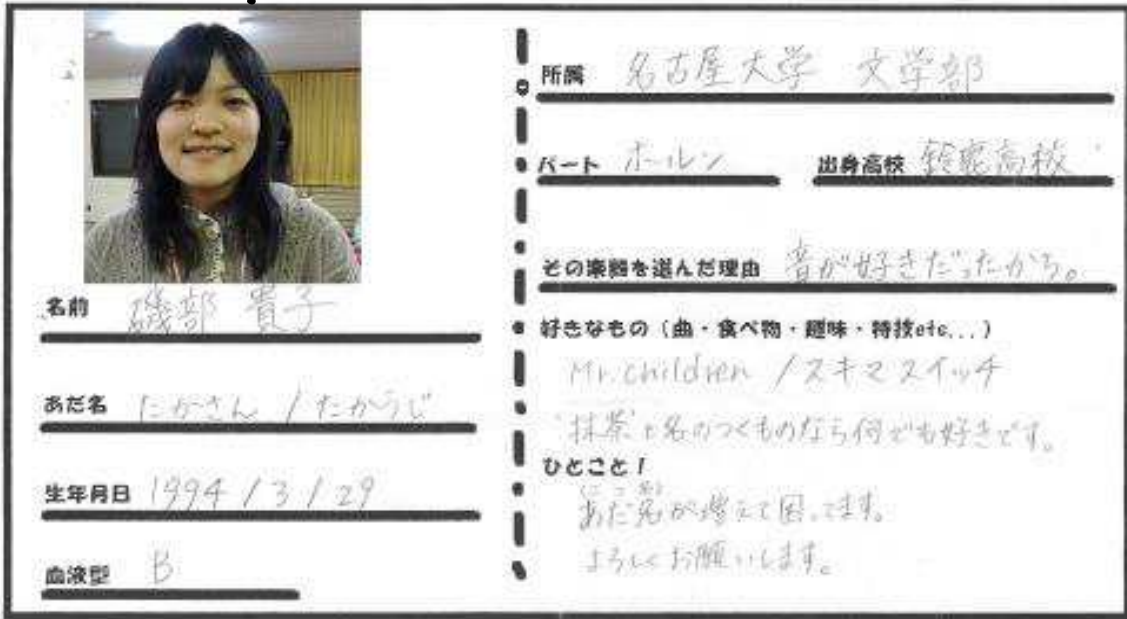 名前 磯部 貴子
あだ名 たかさん / たかうじ
生年月日 1994 / 3 / 29
血液型 B
所属 名古屋大学 文学部
パート ホルン
出身高校 鈴鹿高校
その楽器を選んだ理由 音が好きだったから。
好きなもの（曲・食べ物・趣味・特技etc...）
Mr.children / スキマスイッチ
"抹茶"と名のつくものなら何でも好きです。
ひとこと！
あだ名が増えて困ってます。
よろしくお願いします。